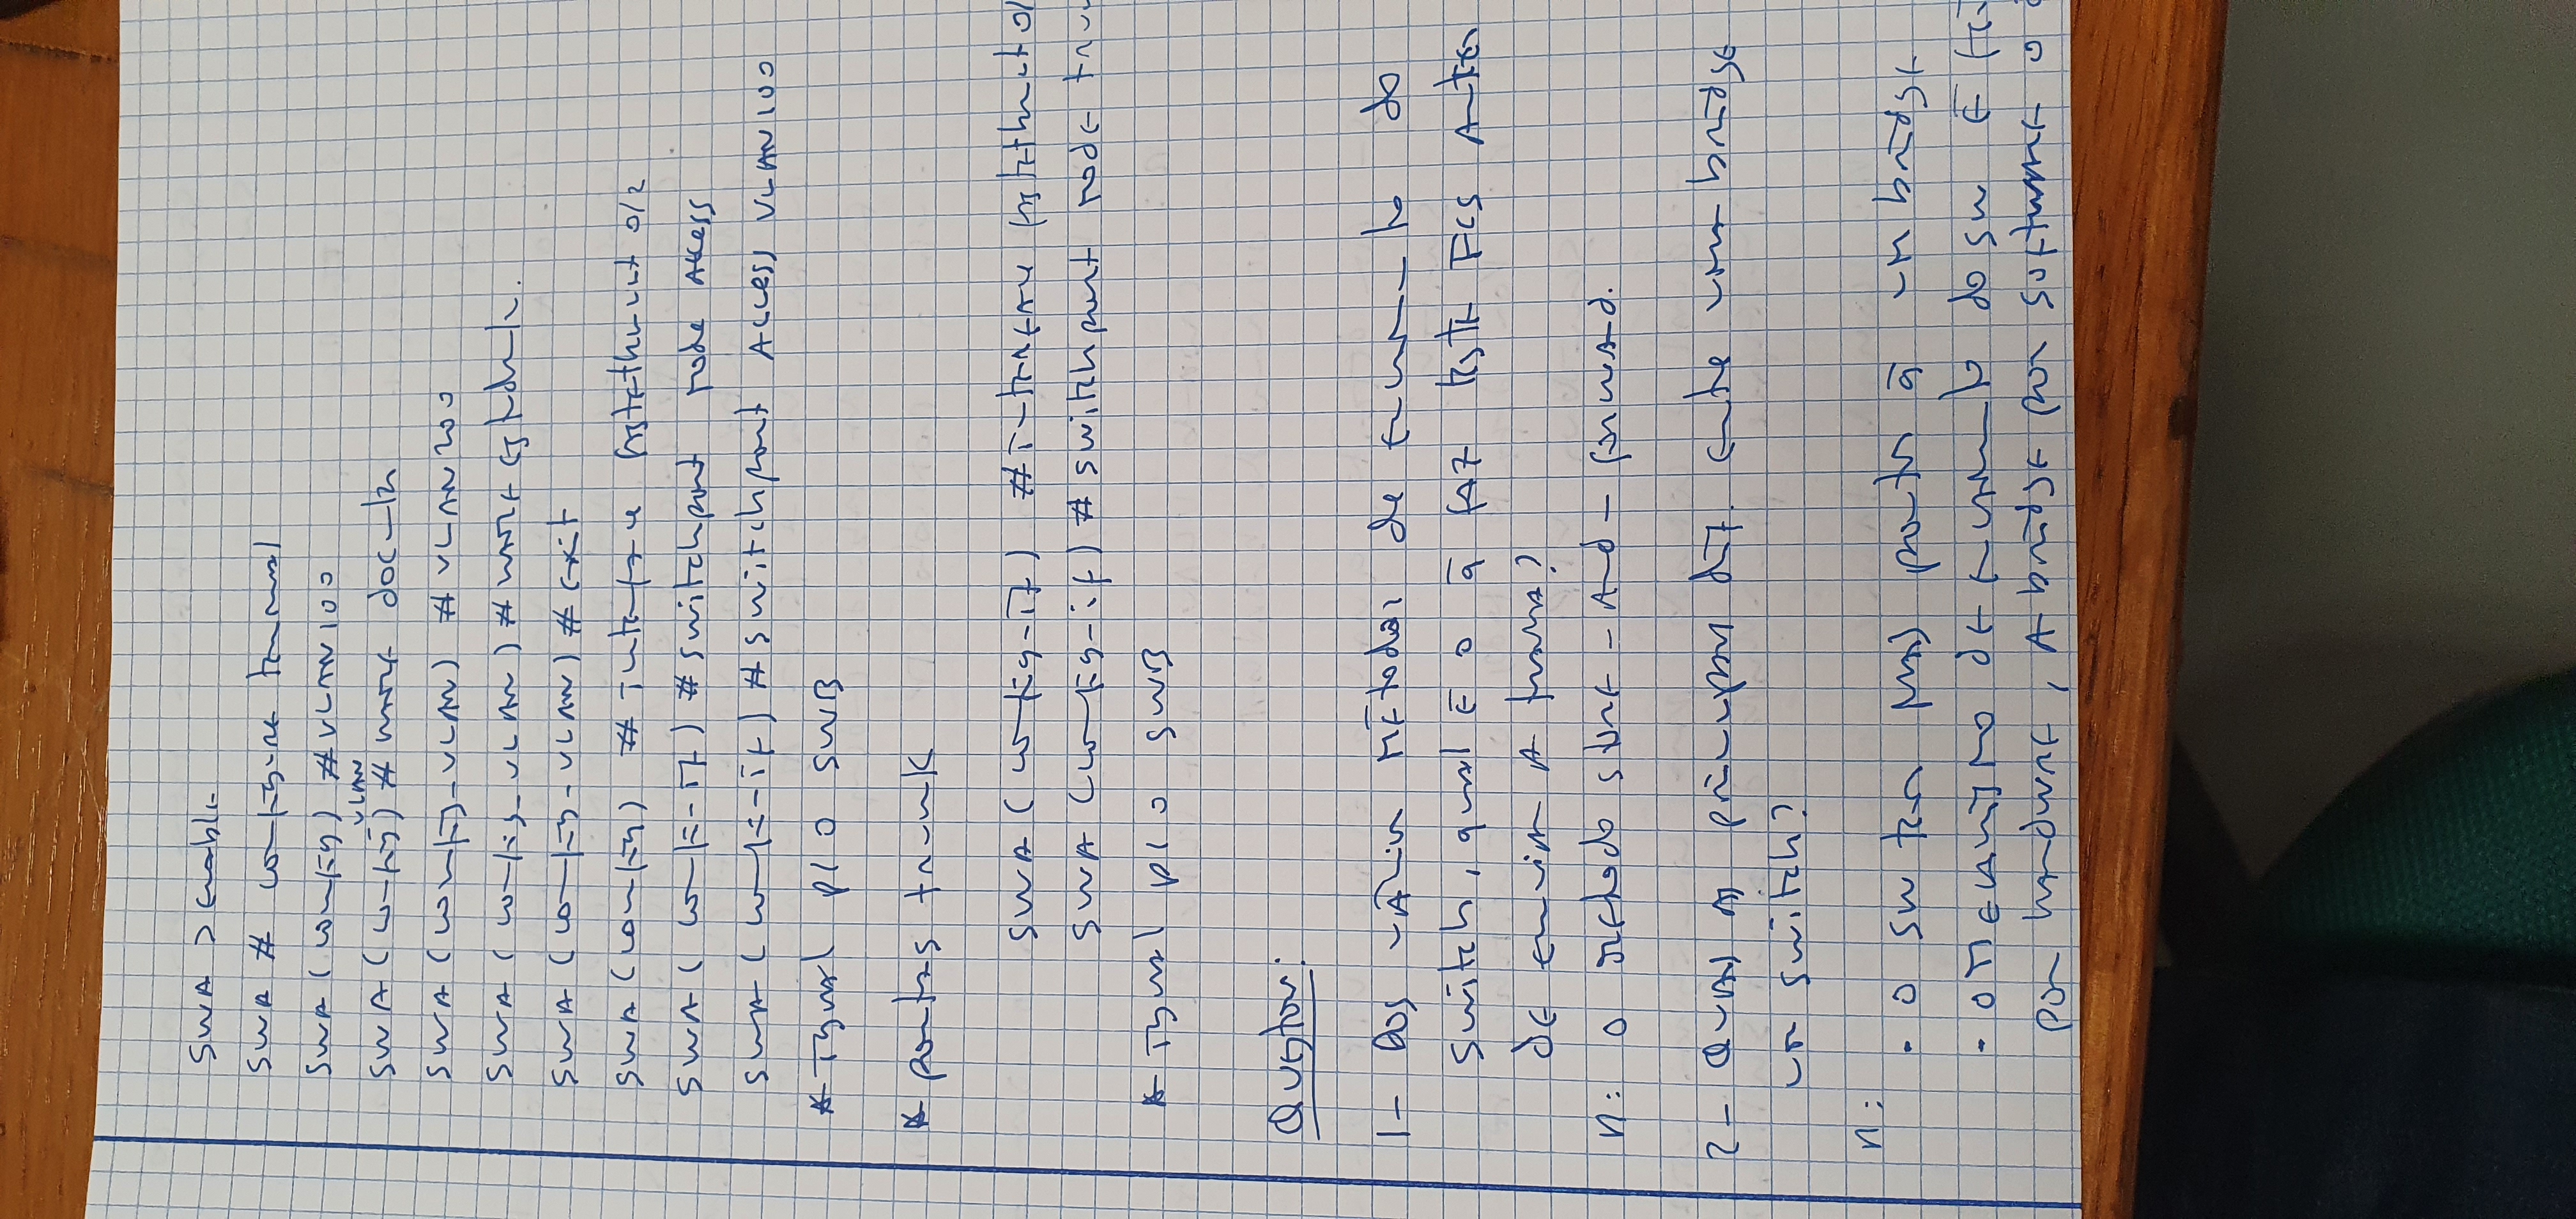 SWA > enable
SWA # configure terminal
SWA (config) # VLAN 100
VLAN
SWA (config) # name docente
SWA (config-VLAN) # VLAN 200
SWA (config-VLAN) # name estudante.
SWA (config-VLAN) # exit
SWA (config) # interface fastethernet 0/2
SWA (config-if) # switchport mode Access
SWA (config-if) # switchport Access VLAN 100
* Igual p/ o SWB
* portas trunk
SWA (config-if) # interface fastethernet 0/
SWA (config-if) # switchport mode trun
* Igual p/ o SWB
Questões:
1- Dos vários métodos de encaminhamento do
switch, qual é o q̄ faz teste FCS Antes
de enviar A trama?
R: O método store-And-forward.
2- Quais As principais dif. entre uma bridge
um switch?
R:
. O sw tem mais portas q̄ um bridge
. O mecanismo de encaminhamento do sw é
por hardware, A bridge por software o